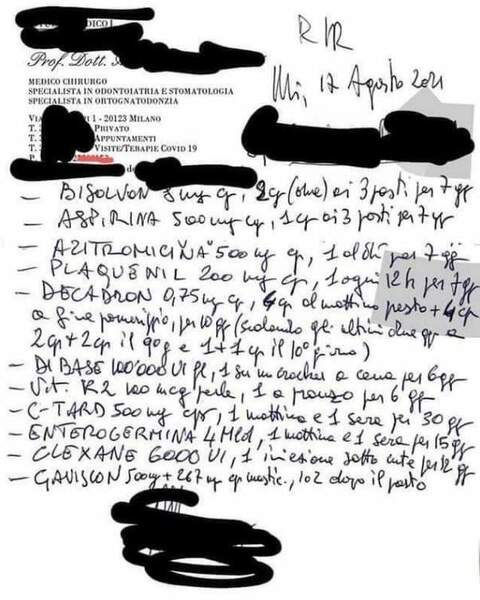 R/R
Prof. Dott.
Mi, 17 Agosto 2021
MEDICO CHIRURGO
SPECIALISTA IN ODONTOIATRIA E STOMATOLOGIA
SPECIALISTA IN ORTOGNATODONZIA
1 - 20123 MILANO
T. PRIVATO
T. APPUNTAMENTI
T. VISITE/TERAPIE COVID 19
P.
- BISOLVON 8 mg cp, 2 cp (due) ai 3 pasti per 7 gg
- ASPIRINA 500 mg cp, 1 cp ai 3 pasti per 7 gg
- AZITROMICINA 500 mg cp, 1 al dì per 7 gg
- PLAQUENIL 200 mg cp, 1 ogni 12 h per 7 gg
- DECADRON 0,75 mg cp, 4 cp al mattino pasto + 4 cp
a fine pomeriggio, per 10 gg (scalando gli ultimi due gg a
2 cp + 2 cp il 9° g e 1 + 1 cp il 10° giorno)
- DIBASE 100'000 UI fl, 1 su un cracker a cena per 6 gg
- Vit. K2 100 mcg perle, 1 a pranzo per 6 gg
- C-TARD 500 mg cps, 1 mattina e 1 sera per 30 gg
- ENTEROGERMINA 4 Mld, 1 mattina e 1 sera per 15 gg
- CLEXANE 6000 UI, 1 iniezione sotto cute per 12 gg
- GAVISCON 500 mg + 267 mg cp mastic., 1 o 2 dopo il pasto